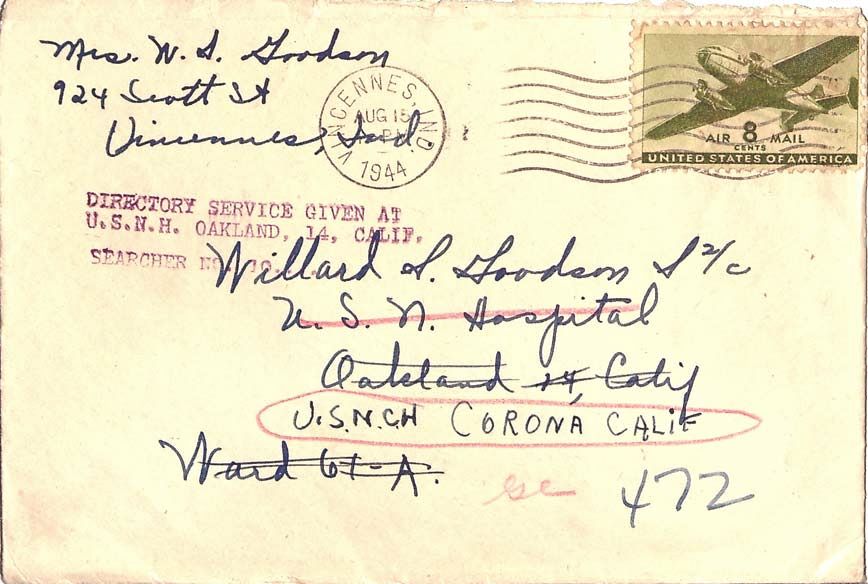 Mrs. W. S. Goodson
924 Scott St
Vincennes, Ind
VINCENNES, IND.
AUG 15
PM
1944
AIR 8 MAIL
CENTS
UNITED STATES OF AMERICA
DIRECTORY SERVICE GIVEN AT
U.S.N.H. OAKLAND, 14, CALIF.
SEARCHER NO.
Willard S. Goodson S 2/c
U. S. N. Hospital
Oakland 14, Calif
U.S.N.C.H CORONA CALIF
Ward 61-A.
472